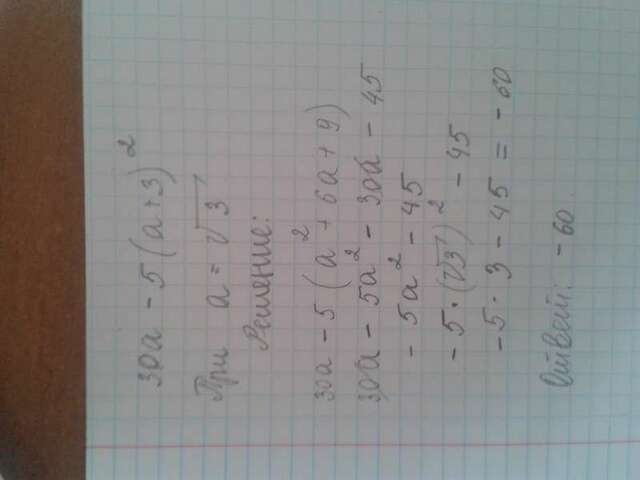 30a - 5(a+3)²
При a = √3
Решение:
30a - 5(a² + 6a + 9)
30a - 5a² - 30a - 45
- 5a² - 45
- 5·(√3)² - 45
- 5·3 - 45 = - 60
Ответ: - 60.